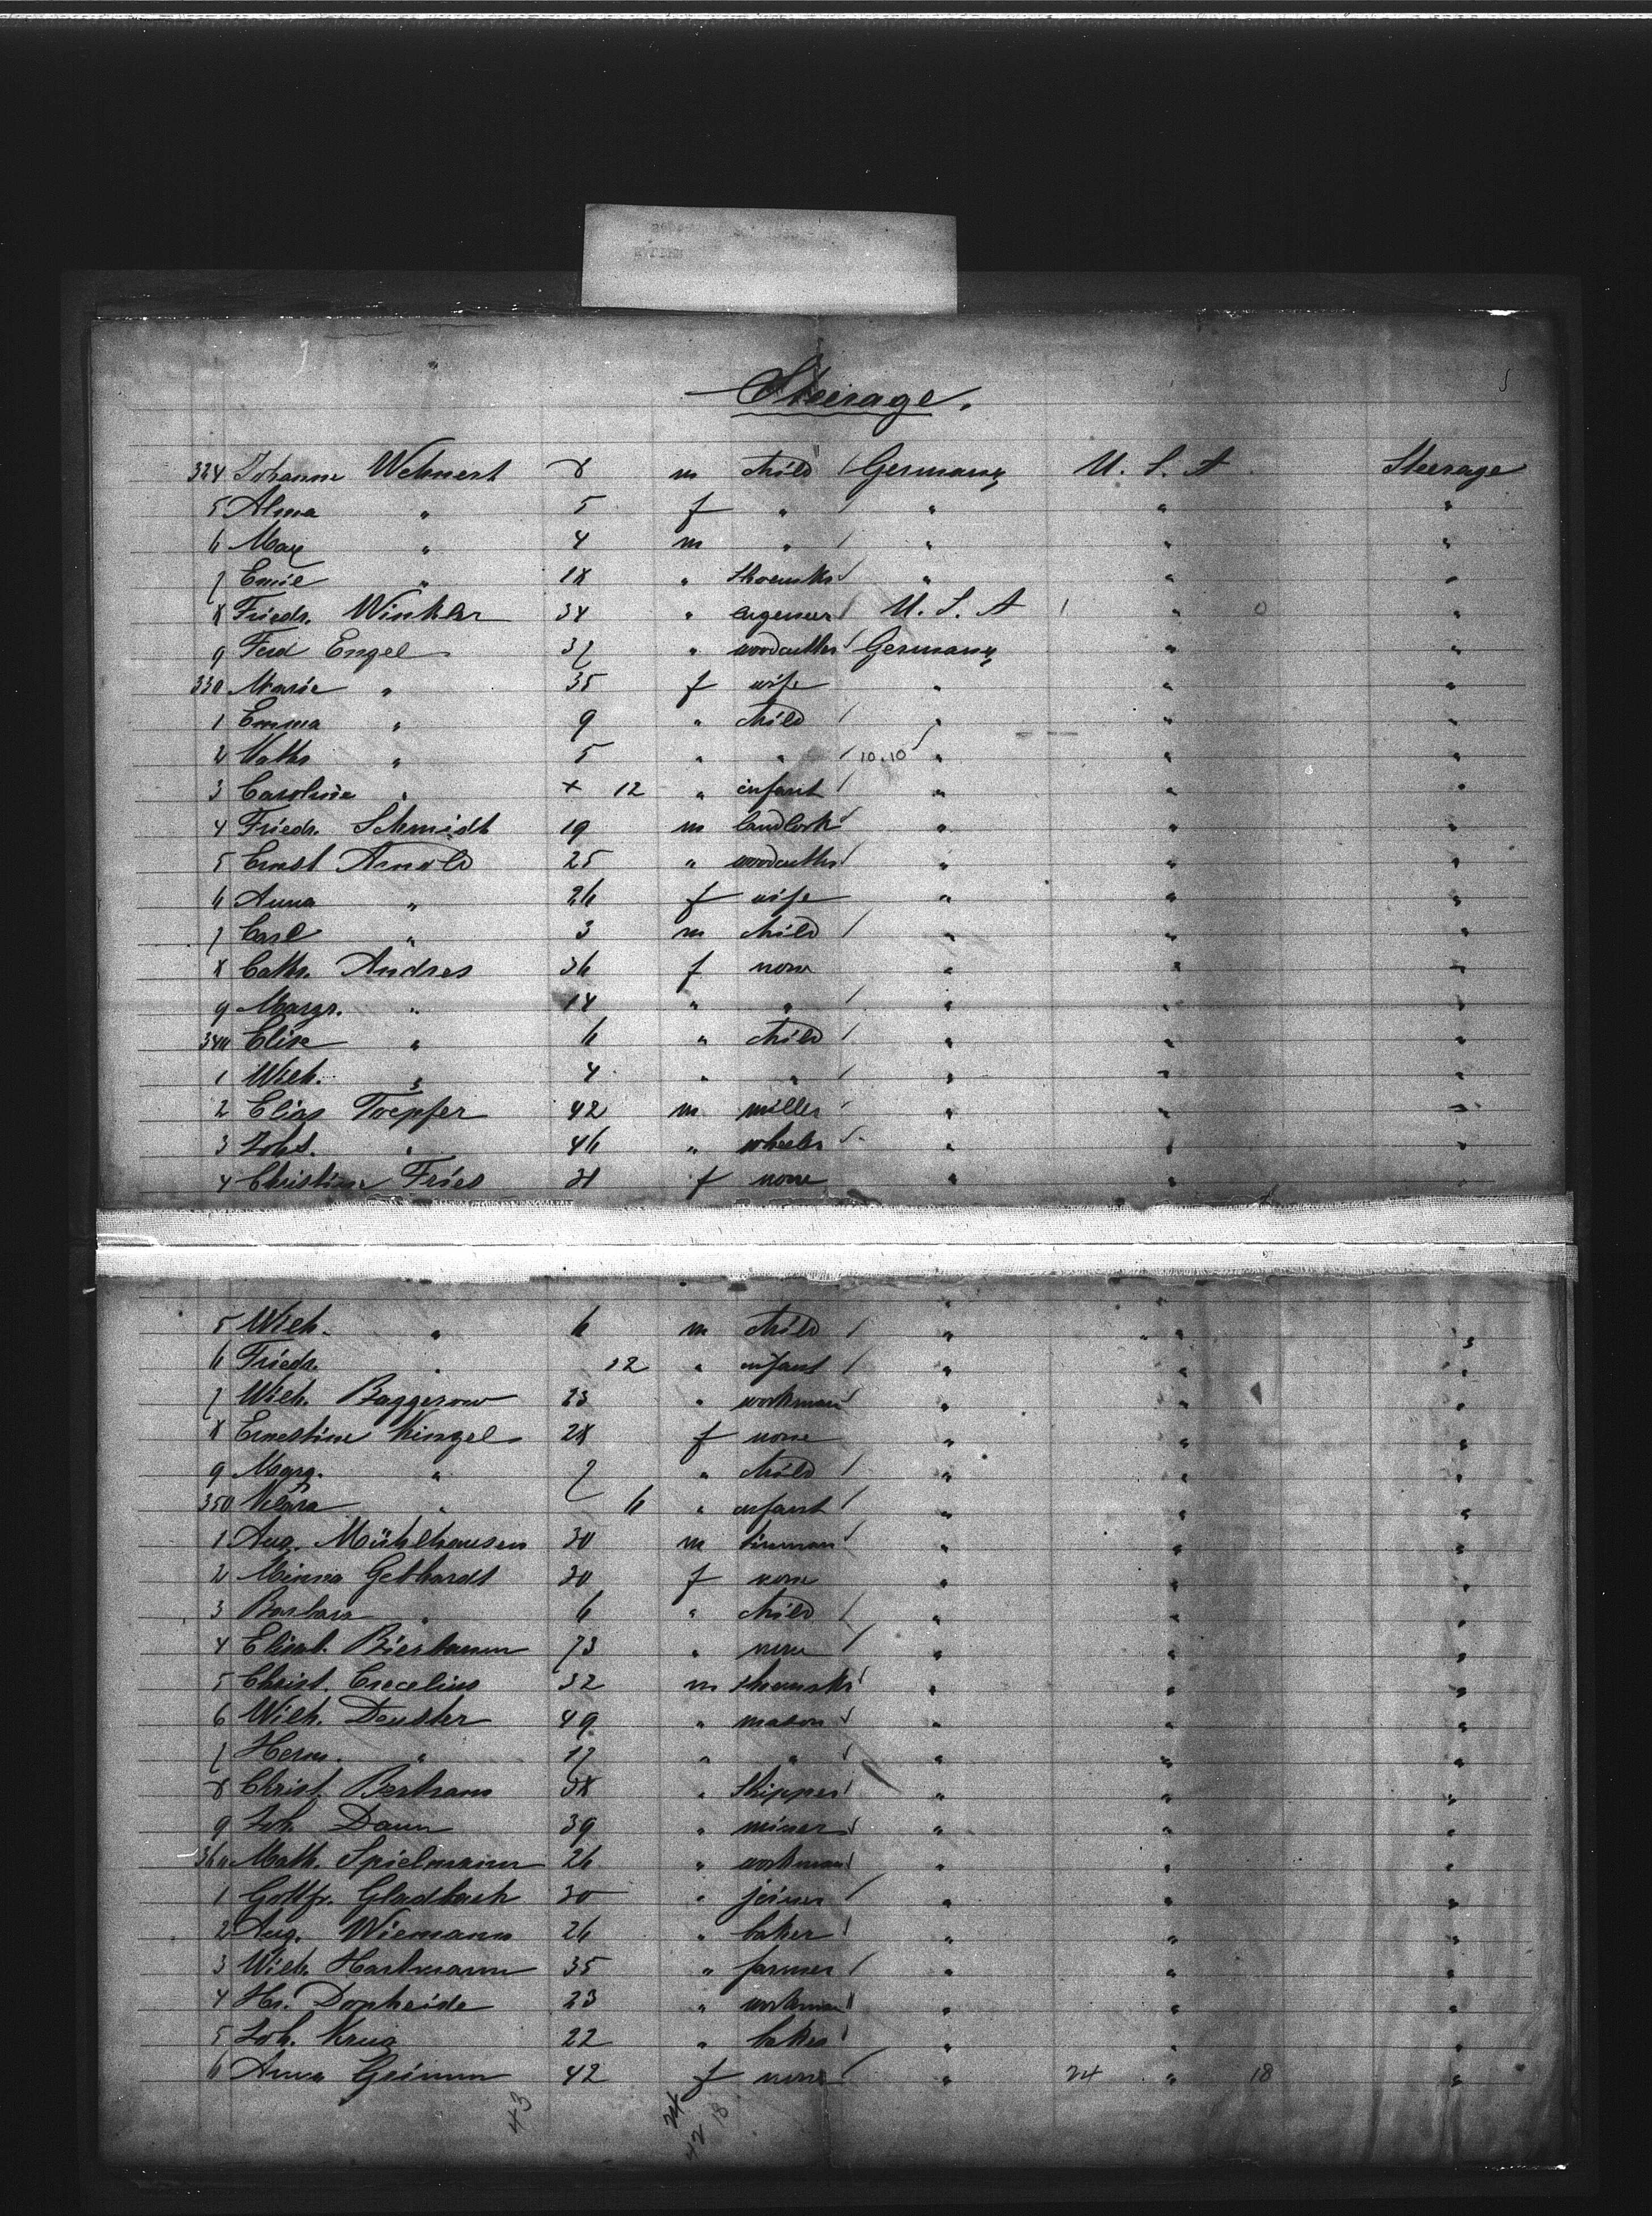 Steerage.
324 Johanne Wehnert 8 m child Germany U. S. A. Steerage
5 Alma " 5 f " " " "
6 Max " 4 m " " " "
7 Emil " 18 " shoemkr " " "
8 Friedr. Winkler 34 " engeneer U. S. A 1 " 0 "
9 Ferd Engel 37 " woodcutter Germany " "
330 Marie " 35 f wife " " "
1 Emma " 9 " child " " "
2 Kath " 5 " " 10.10 " " "
3 Caroline " + 12 " infant " " "
4 Friedr. Schmidt 19 m " " "
5 Ernst Arnold 25 " woodcutter " " "
6 Anna " 26 f wife " " "
7 Carl " 3 m child " " "
8 Cath. Andres 36 f none " " "
9 Margr. " 14 " " " " "
340 Elise " 6 " child " " "
1 Wilh. " 4 " " " " "
2 Elias Toepfer 42 m miller " " "
3 Johs. " 46 " " " "
4 Christine Fries 31 f none " " "
5 Wilh. " 6 m child " " "
6 Friedr. " 12 " infant " " "
7 Wilh. Baggerow 23 " workman " " "
8 Ernestine Kinzel 28 f none " " "
9 Marg. " 7 " child " " "
350 Klara " 6 " infant " " "
1 Aug. Mühlhausen 30 m " " "
2 Minna Gebhardt 30 f none " " "
3 Barbara " 6 " child " " "
4 Elisab. Bierbaum 73 " none " " "
5 Christ. Crecelius 32 m shoemakr " " "
6 Wilh. Deuster 49 " mason " " "
7 Herm. " 17 " " " " "
8 Christ. Bertrams 38 " skipper " " "
9 Joh. Daun 39 " miner " " "
360 Math. Spielmann 26 " workman " " "
1 Gottfr. Gladbach 30 " joiner " " "
2 Aug. Wiemann 26 " baker " " "
3 Wilh. Hartmann 35 " farmer " " "
4 Hr. Dopheide 23 " workman " " "
5 Joh. Krug 22 " baker " " "
6 Anna Grimm 42 f none " 24 " 18 "
43 24 18
42